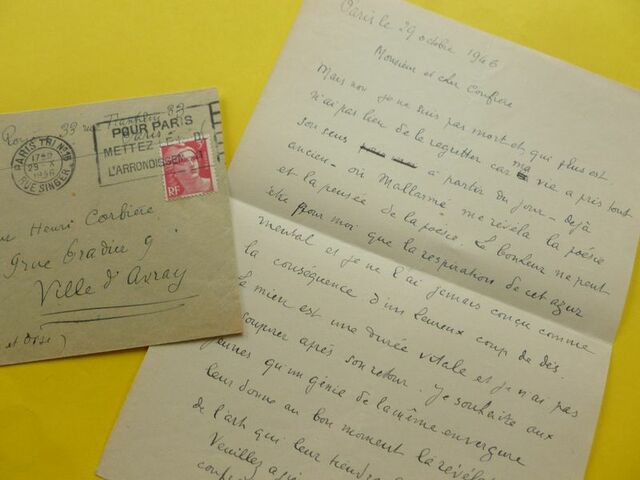 33 rue Franklin
Paris
POUR PARIS
METTEZ
L'ARRONDISSEMENT
PARIS TRI Nº18
17H30
29 X
1946
RUE SINGER
RF
Henri Corbière
9 rue Pradier 9
Ville d'Avray
et Oise)
Paris le 29 octobre 1946
Monsieur et cher Confrère
Mais non je ne suis pas mort et, qui plus est
n'ai pas lieu de le regretter car ma vie a pris tout
son sens à partir du jour - déjà
ancien - où Mallarmé me révéla la poésie
et la pensée de la poésie. Le bonheur ne peut
être pour moi que la respiration de cet azur
mental et je ne l'ai jamais conçu comme
la conséquence d'un heureux coup de dés.
le mien est une durée vitale et je n'ai pas
soupirer après son retour. Je souhaite aux
jeunes qu'un génie de la même envergure
leur donne au bon moment la révélat
de l'art qui leur tiendra
Veuillez agré